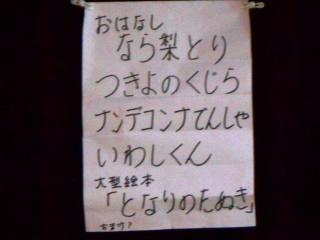 おはなし
なら梨とり
つきよのくじら
ナンデコンナでんしゃ
いわしくん
大型絵本
「となりのたぬき」
おまけ？